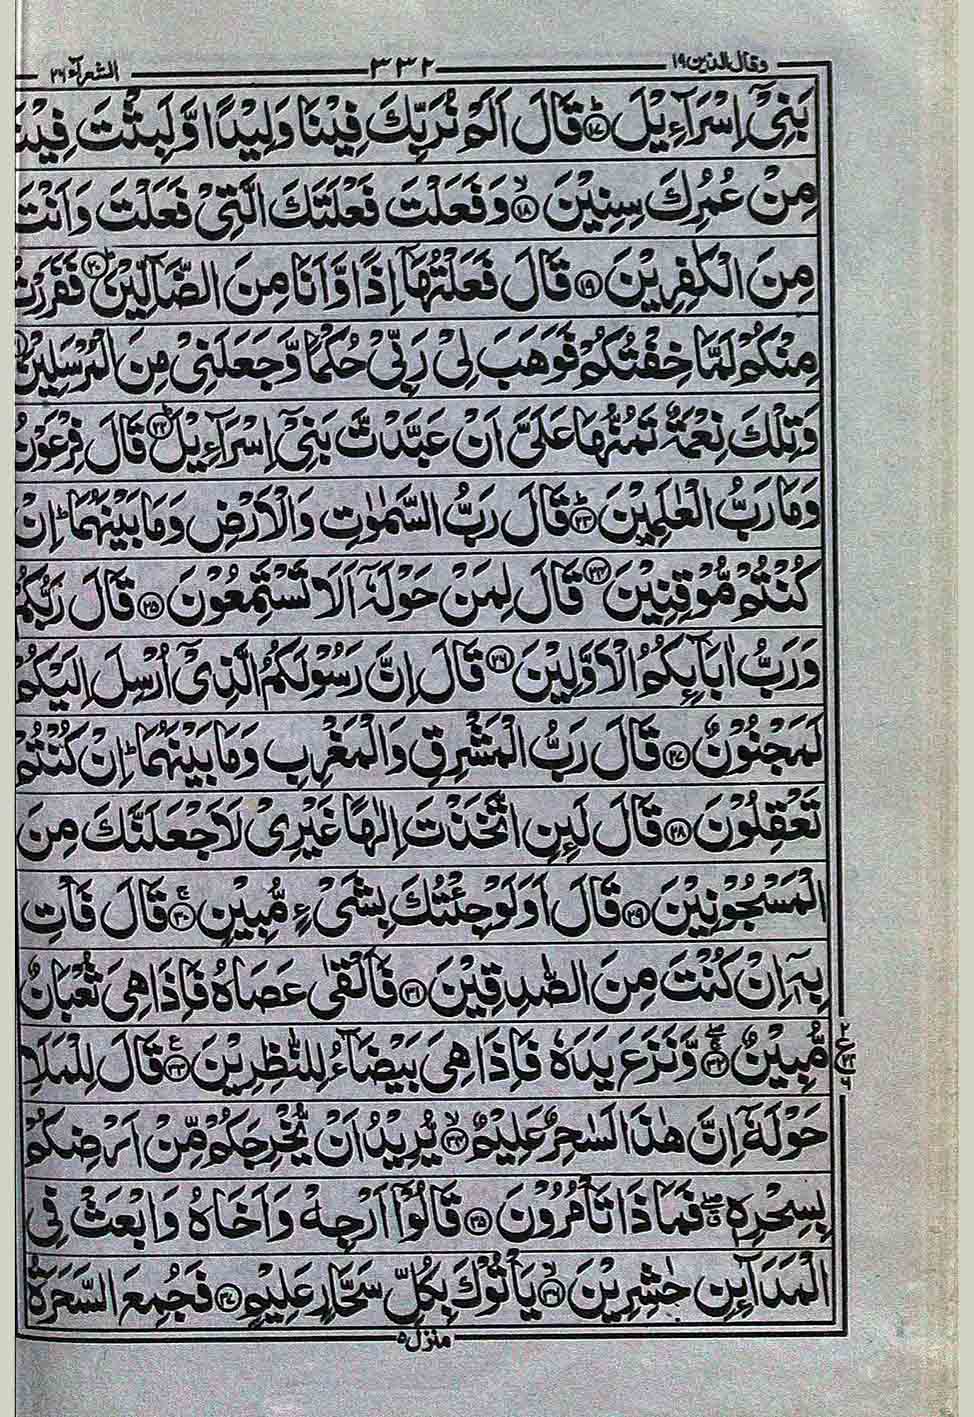 وقال الذين ١٩ ٣٣٢ الشعرآء ٢٦
بَنِیْۤ اِسْرَآءِیْلَ ؕ﴿۱۷﴾ قَالَ اَلَمْ نُرَبِّكَ فِیْنَا وَلِیْدًا وَّ لَبِثْتَ فِیْنَا
مِنْ عُمُرِكَ سِنِیْنَ ۙ﴿۱۸﴾ وَ فَعَلْتَ فَعْلَتَكَ الَّتِیْ فَعَلْتَ وَ اَنْتَ
مِنَ الْكٰفِرِیْنَ ﴿۱۹﴾ قَالَ فَعَلْتُهَاۤ اِذًا وَّ اَنَا مِنَ الضَّآلِّیْنَ ؕ﴿۲۰﴾ فَفَرَرْتُ
مِنْكُمْ لَمَّا خِفْتُكُمْ فَوَهَبَ لِیْ رَبِّیْ حُكْمًا وَّ جَعَلَنِیْ مِنَ الْمُرْسَلِیْنَ
وَ تِلْكَ نِعْمَةٌ تَمُنُّهَا عَلَیَّ اَنْ عَبَّدْتَّ بَنِیْۤ اِسْرَآءِیْلَ ؕ﴿۲۲﴾ قَالَ فِرْعَوْنُ
وَ مَا رَبُّ الْعٰلَمِیْنَ ؕ﴿۲۳﴾ قَالَ رَبُّ السَّمٰوٰتِ وَ الْاَرْضِ وَ مَا بَیْنَهُمَا ؕ اِنْ
كُنْتُمْ مُّوْقِنِیْنَ ﴿۲۴﴾ قَالَ لِمَنْ حَوْلَهٗۤ اَلَا تَسْتَمِعُوْنَ ﴿۲۵﴾ قَالَ رَبُّكُمْ
وَ رَبُّ اٰبَآىِٕكُمُ الْاَوَّلِیْنَ ﴿۲۶﴾ قَالَ اِنَّ رَسُوْلَكُمُ الَّذِیْۤ اُرْسِلَ اِلَیْكُمْ
لَمَجْنُوْنٌ ﴿۲۷﴾ قَالَ رَبُّ الْمَشْرِقِ وَ الْمَغْرِبِ وَ مَا بَیْنَهُمَا ؕ اِنْ كُنْتُمْ
تَعْقِلُوْنَ ﴿۲۸﴾ قَالَ لَىِٕنِ اتَّخَذْتَ اِلٰهًا غَیْرِیْ لَاَجْعَلَنَّكَ مِنَ
الْمَسْجُوْنِیْنَ ﴿۲۹﴾ قَالَ اَوَ لَوْ جِئْتُكَ بِشَیْءٍ مُّبِیْنٍ ۚ﴿۳۰﴾ قَالَ فَاْتِ
بِهٖۤ اِنْ كُنْتَ مِنَ الصّٰدِقِیْنَ ﴿۳۱﴾ فَاَلْقٰی عَصَاهُ فَاِذَا هِیَ ثُعْبَانٌ
مُّبِیْنٌ ۚۖ﴿۳۲﴾ وَّ نَزَعَ یَدَهٗ فَاِذَا هِیَ بَیْضَآءُ لِلنّٰظِرِیْنَ ﴿۳۳﴾ قَالَ لِلْمَلَاِ
حَوْلَهٗۤ اِنَّ هٰذَا لَسٰحِرٌ عَلِیْمٌ ۙ﴿۳۴﴾ یُّرِیْدُ اَنْ یُّخْرِجَكُمْ مِّنْ اَرْضِكُمْ
بِسِحْرِهٖ ۖۗ فَمَا ذَا تَاْمُرُوْنَ ﴿۳۵﴾ قَالُوْۤا اَرْجِهْ وَ اَخَاهُ وَ ابْعَثْ فِی
الْمَدَآىِٕنِ حٰشِرِیْنَ ۙ﴿۳۶﴾ یَاْتُوْكَ بِكُلِّ سَحَّارٍ عَلِیْمٍ ﴿۳۷﴾ فَجُمِعَ السَّحَرَةُ
منزل ۵